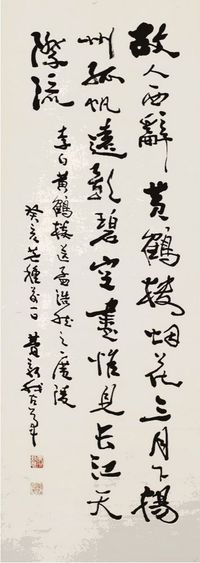 故人西辭黄鶴樓烟花三月下揚
州孤帆遠影碧空盡惟見長江天
際流
李白黄鶴樓送孟浩然之廣陵
癸亥芒種後一日費新我左筆